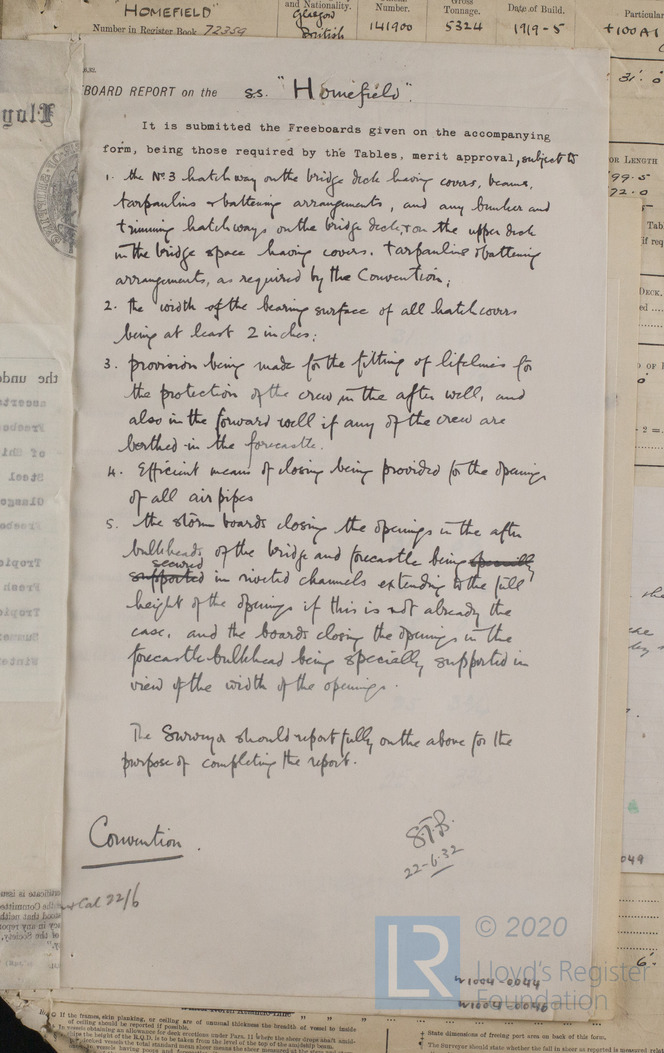 "HOMEFIELD"
Number in Register Book 72359
and Nationality.
Glasgow
British
Number.
141900
Gross
Tonnage.
5324
Date of Build.
1919-5
Particula
+100A1
BOARD REPORT on the s.s. "Homefield".
It is submitted the Freeboards given on the accompanying
form, being those required by the Tables, merit approval, subject to
1. the No. 3 hatchway on the bridge deck having covers, beams,
tarpaulins & battening arrangements, and any bunker and
trimming hatchways on the bridge deck, & on the upper deck
in the bridge space having covers, tarpaulins & battening
arrangements, as required by the Convention;
2. the width of the bearing surface of all hatch covers
being at least 2 inches;
3. provision being made for the fitting of lifelines for
the protection of the crew in the after well, and
also in the forward well if any of the crew are
berthed in the forecastle.
4. Efficient means of closing being provided for the openings
of all air pipes
5. the storm boards closing the openings in the after
bulkheads of the bridge and forecastle being specially
supported secured in riveted channels extending to the full
height of the openings if this is not already the
case, and the boards closing the openings in the
forecastle bulkhead being specially supported in
view of the width of the openings.
The Surveyor should report fully on the above for the
purpose of completing the report.
Convention.
S.T.B.
22-6-32
Cal 22/6
LR
© 2020
Lloyd's Register
Foundation
W1004-0044
W1004-0046
If the frames, skin planking, or ceiling are of unusual thickness the breadth of vessel to inside
of ceiling should be reported if possible.
State dimensions of freeing port area on back of this form.